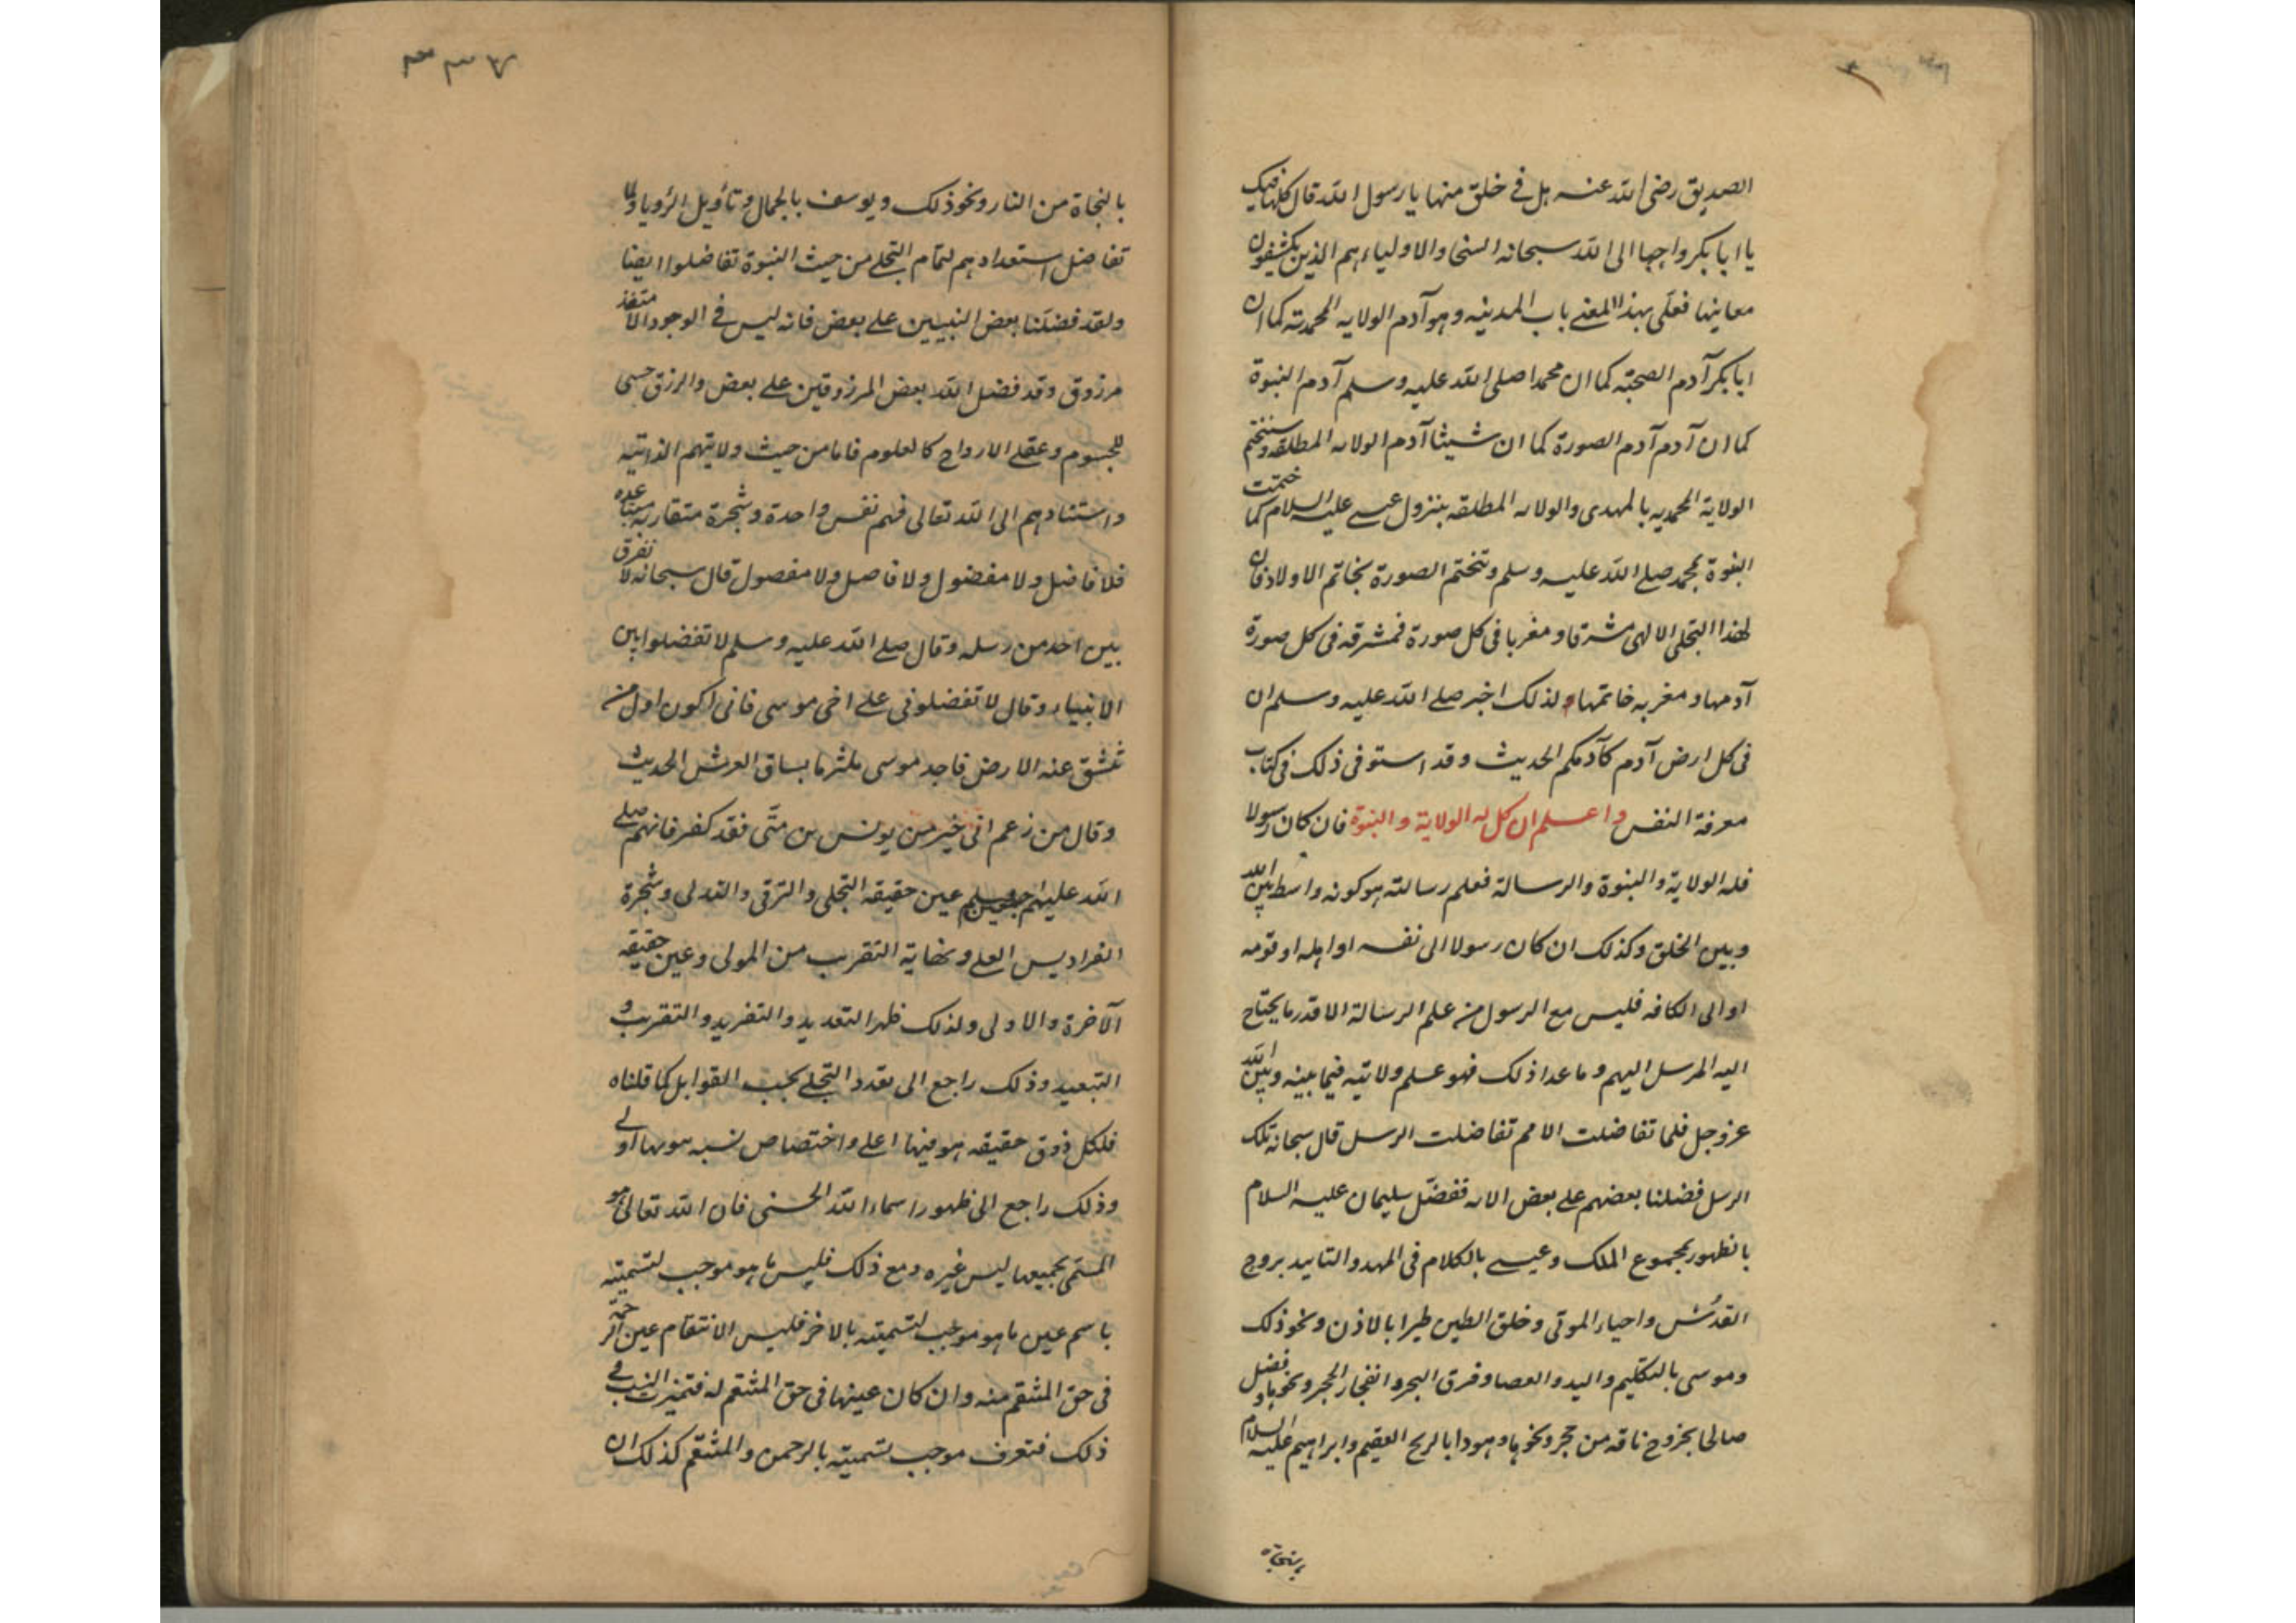 الصديق رضى الله عنه هل فى خلق منها يا رسول الله قال كلها فيك
يا ابا بكر واحبها الى الله سبحانه السخا والاولياء هم الذين يكشفون
معانيها فعلى بهذا المعنى باب المدينه وهو آدم الولايه المحمديه كما ان
ابا بكر آدم الصحبة كما ان محمدا صلى الله عليه وسلم آدم النبوة
كما ان آدم آدم الصورة كما ان شيثا آدم الولايه المطلقه وستختم
الولاية المحمديه بالمهدى والولايه المطلقه بنزول عيسى عليه السلام كما ختمت
النبوة بمحمد صلى الله عليه وسلم وتختم الصورة بخاتم الاولاد فان
لهذا التجلى الالهى مشرقا ومغربا فى كل صورة فمشرقه فى كل صورة
آدمها ومغربه خاتمها ولذلك اخبر صلى الله عليه وسلم ان
فى كل ارض آدم كآدمكم الحديث وقد استوفى ذلك فى كتاب
معرفة النفس واعلم ان كل له الولاية والنبوة فان كان رسولا
فله الولاية والنبوة والرسالة فعلم رسالته هو كونه واسطه بين الله
وبين الخلق وكذلك ان كان رسولا الى نفسه او اهله او قومه
او الى الكافه فليس مع الرسول من علم الرسالة الا قدر ما يحتاج
اليه المرسل اليهم وما عدا ذلك فهو علم ولايته فيما بينه وبين الله
عز وجل فلما تفاضلت الامم تفاضلت الرسل قال سبحانه تلك
الرسل فضلنا بعضهم على بعض الايه ففضّل سليمان عليه السلام
بالظهور بمجموع الملك وعيسى بالكلام فى المهد والتاييد بروح
القدس واحياء الموتى وخلق الطين طيرا بالاذن ونحو ذلك
وموسى بالتكليم واليد والعصا وفرق البحر وانفجار الحجر ونحوها وفضل
صالحا بخروج ناقه من حجر ونحوها وهودا بالريح العقيم وابراهيم عليه السلام
بالنجاة
بالنجاة من النار ونحو ذلك ويوسف بالجمال وتأويل الرؤيا ولما
تفاضل استعدادهم لتمام التجلى من حيث النبوة تفاضلوا ايضا
ولقد فضلنا بعض النبيين على بعض فانه ليس فى الوجود الا متغذ
مرزوق وقد فضل الله بعض المرزوقين على بعض والرزق حسى
للجسوم وعقلى للارواح كالعلوم فاما من حيث ولايتهم الذاتيه
واستنادهم الى الله تعالى فهم نفس واحدة وشجرة متقاربه متباعده
فلا فاضل ولا مفضول ولا فاصل ولا مفصول قال سبحانه لا نفرق
بين احد من رسله وقال صلى الله عليه وسلم لا تفضلوا بين
الانبياء وقال لا تفضلونى على اخى موسى فانى اكون اول من
تنشق عنه الارض فاجد موسى ملتزما بساق العرش الحديث
وقال من زعم انى خير من يونس بن متّى فقد كفر فانهم صلى
الله عليهم وسلم عين حقيقه التجلى والترقى والتدلى وشجرة
الفراديس العلى ونهاية التقرب من المولى وعين حقيقه
الآخرة والاولى ولذلك ظهر التعديد والتفريد والتقريب و
التبعيد وذلك راجع الى تعدد التجلى بحسب القوابل كما قلناه
فلكل ذوق حقيقه هو فيها اعلى واختصاص نسبه هو بها اولى
وذلك راجع الى ظهور اسماء الله الحسنى فان الله تعالى هو
المسمّى بجميعها ليس غيره ومع ذلك فليس ما هو موجب لتسميته
باسم عين ما هو موجب لتسميته بالاخر فليس الانتقام عين الرحمة
فى حق المنتقم منه وان كان عينها فى حق المنتقم له فتميزت النسب فى
ذلك فتعرف موجب تسميته بالرحمن والمنتقم كذلك ان